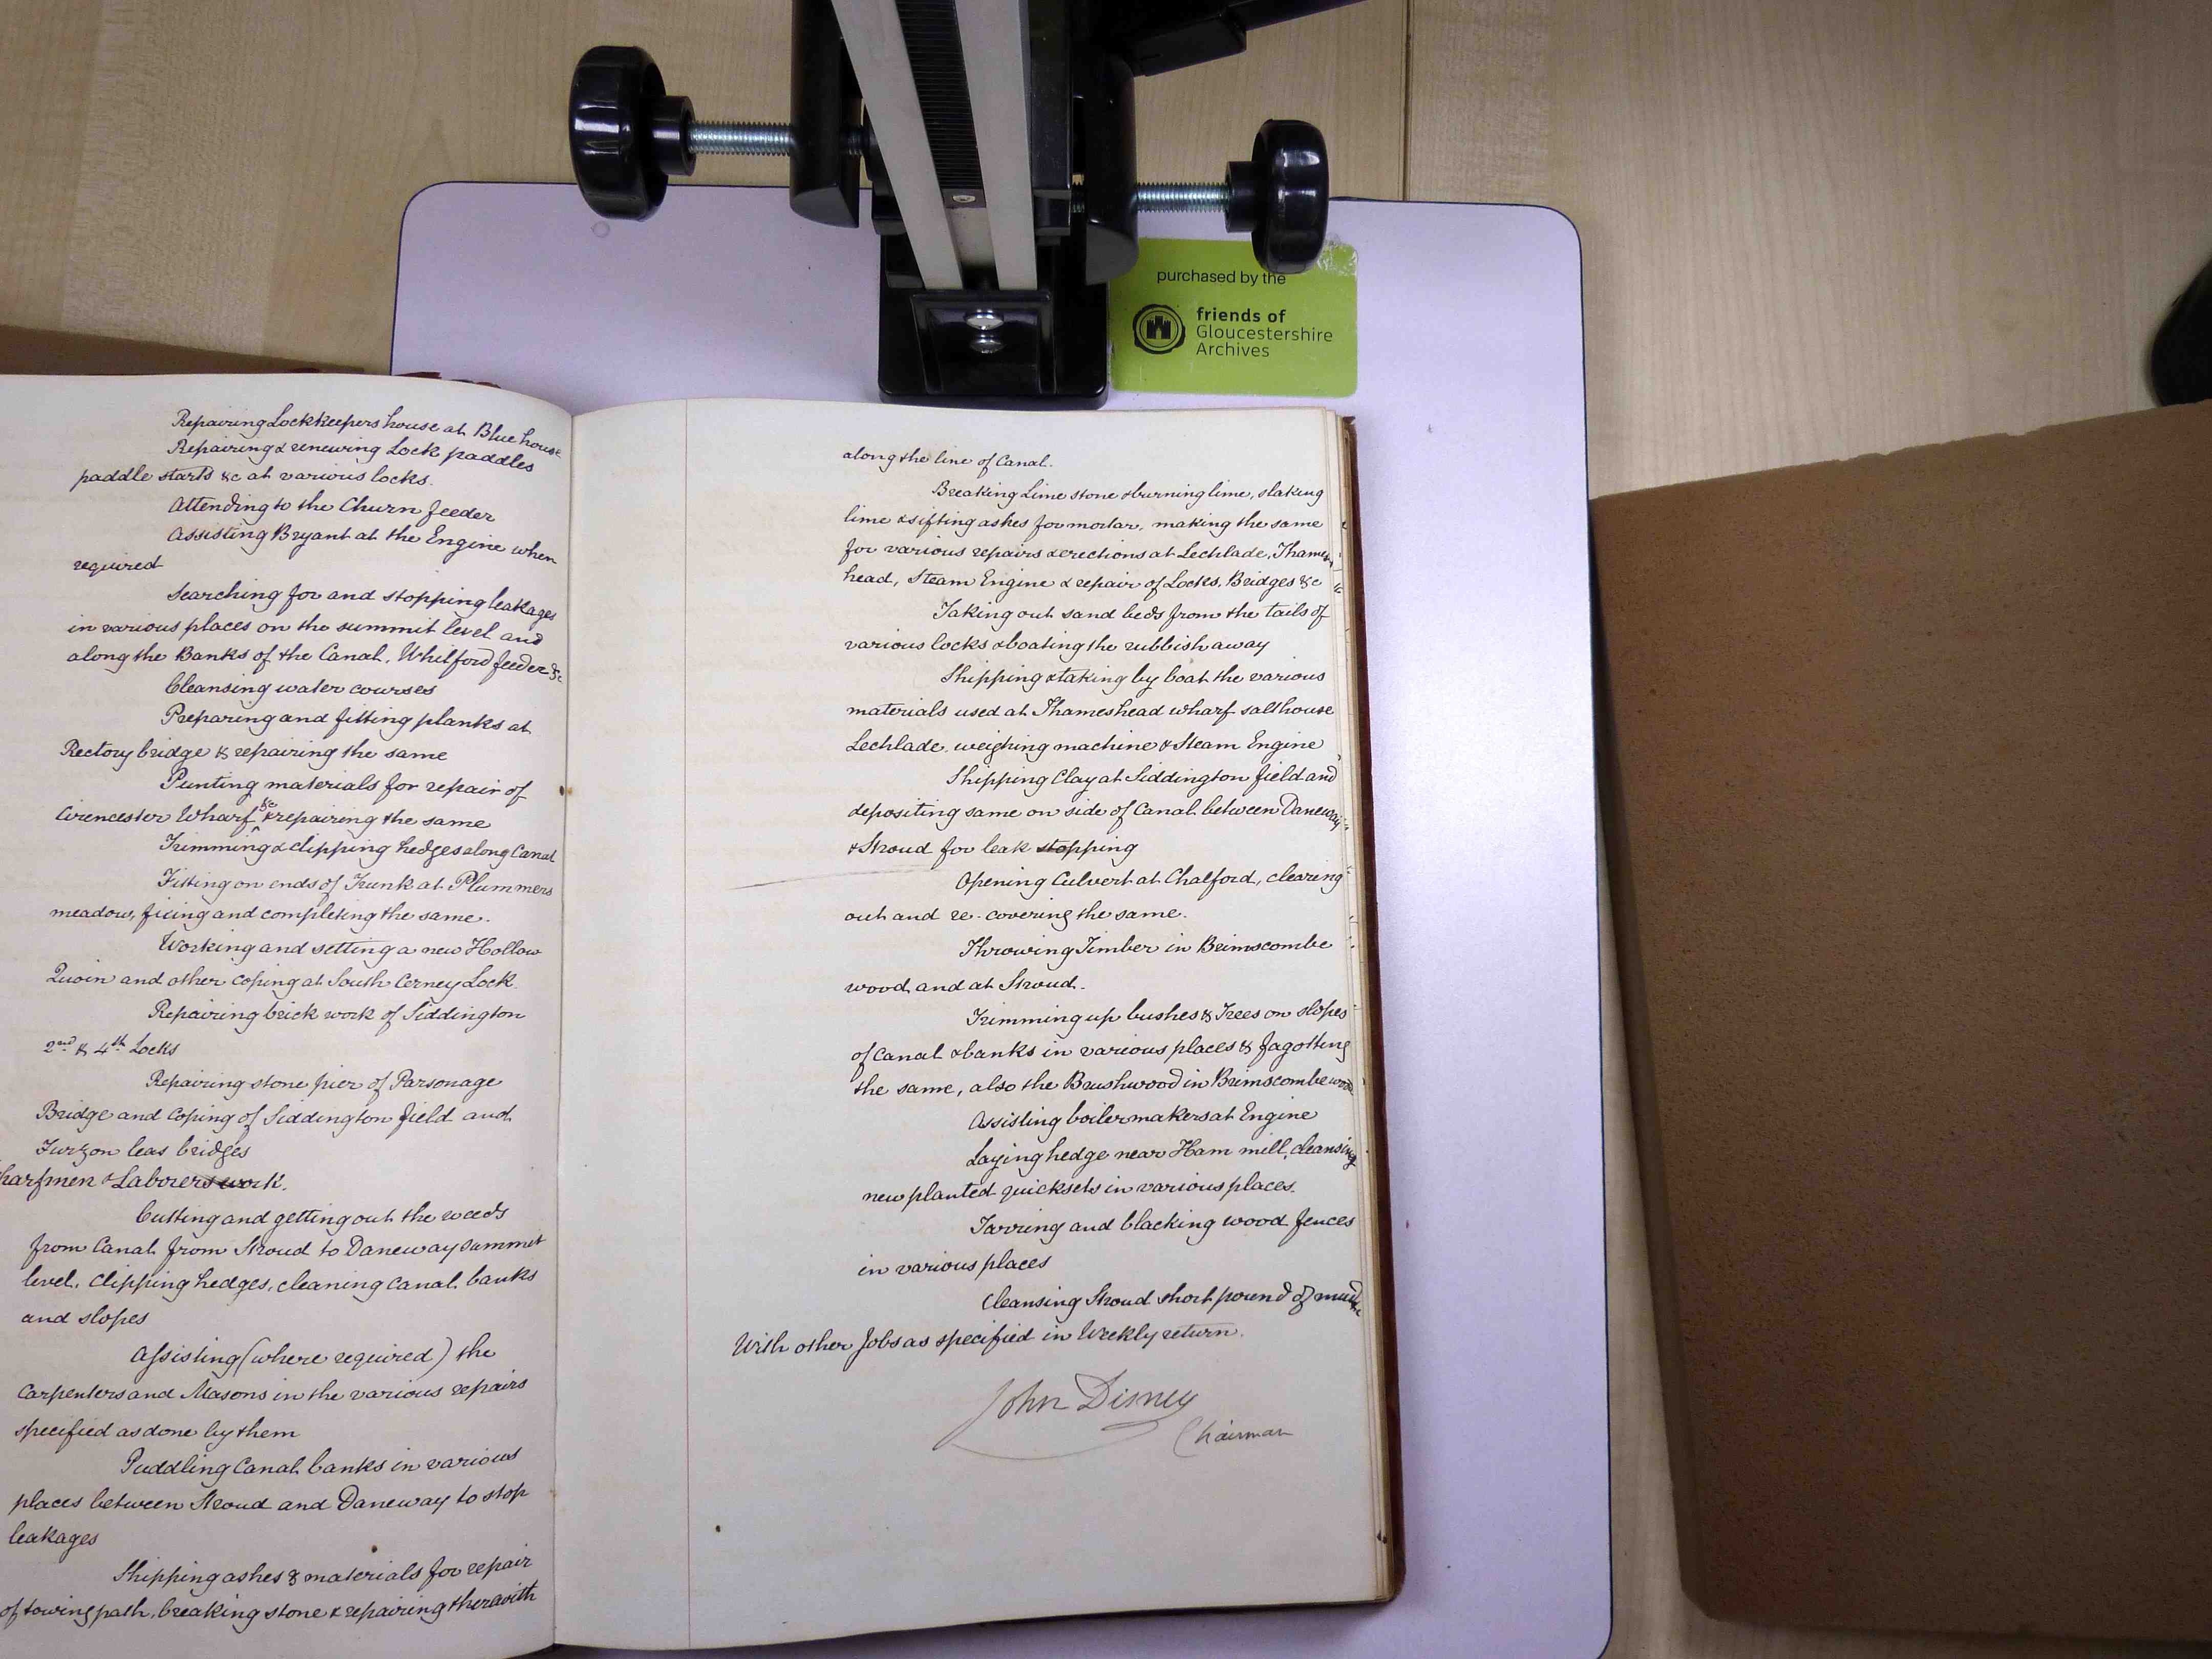 purchased by the
friends of
Gloucestershire
Archives
Repairing Lockkeepers house at Blue house
Repairing & renewing Lock paddles
paddle starts &c at various locks.
Attending to the Churn feeder
Assisting Bryant at the Engine when
required
Searching for and stopping leakages
in various places on the summit level and
along the Banks of the Canal, Whitford feeder &c
Cleansing water courses
Preparing and fitting planks at
Rectory bridge & repairing the same
Punting materials for repair of
Cirencester Wharf &c & repairing the same
Trimming & clipping hedges along Canal
Fitting on ends of Trunk at Plummers
meadow, fixing and completing the same.
Working and setting a new Hollow
Quoin and other coping at South Cerney Lock.
Repairing brick work of Siddington
2nd & 4th Locks
Repairing stone pier of Parsonage
Bridge and coping of Siddington field and
Furzon leas bridges
harfmen & Laborers work.
Cutting and getting out the weeds
from Canal from Stroud to Daneway summit
level. Clipping hedges, cleaning Canal banks
and slopes
Assisting (where required) the
Carpenters and Masons in the various repairs
specified as done by them
Puddling Canal banks in various
places between Stroud and Daneway to stop
leakages
Shipping ashes & materials for repair
of towing path, breaking stone & repairing therewith
along the line of Canal.
Breaking Lime stone & burning lime, slaking
lime & sifting ashes for mortar, making the same
for various repairs & erections at Lechlade, Thames
head, Steam Engine & repair of Locks, Bridges &c
Taking out sand beds from the tails of
various locks & boating the rubbish away
Shipping & taking by boat the various
materials used at Thameshead wharf salthouse
Lechlade, weighing machine & Steam Engine
Shipping Clay at Siddington field and
depositing same on side of Canal between Daneway
& Stroud for leak stopping
Opening Culvert at Chalford, clearing
out and re-covering the same.
Throwing Timber in Brimscombe
wood and at Stroud.
Trimming up bushes & Trees on slopes
of Canal & banks in various places & fagotting
the same, also the Brushwood in Brimscombe wood
Assisting boilermakers at Engine
Laying hedge near Ham mill, cleansing
new planted quicksets in various places.
Tarring and blacking wood fences
in various places
Cleansing Stroud short pound of mud &c
With other Jobs as specified in Weekly return.
John Disney
Chairman